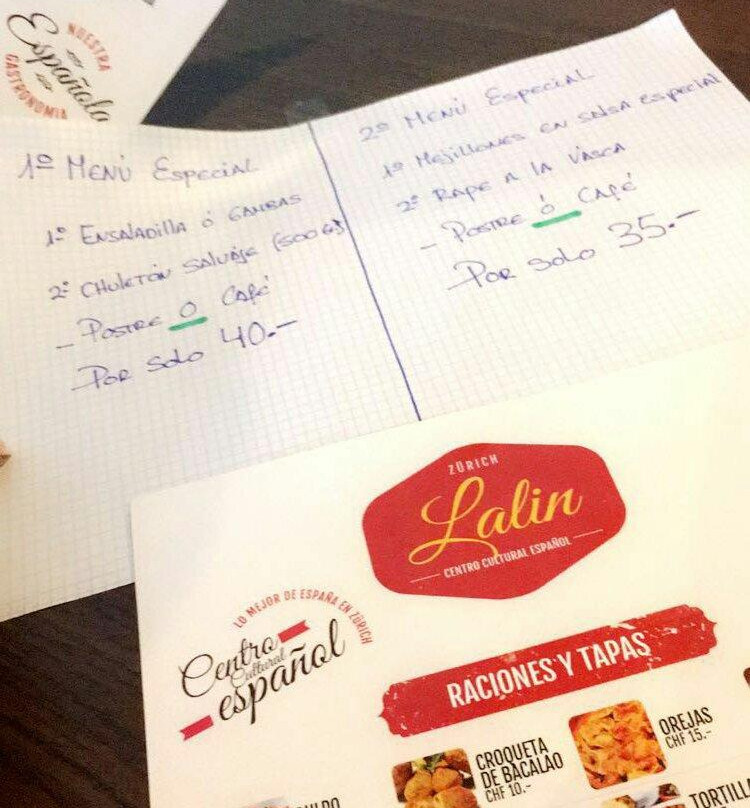 NUESTRA
Española
GASTRONOMIA
1º MENÚ ESPECIAL
1º ENSALADILLA Ó GAMBAS
2º CHULETÓN SALVAJE (500 G)
- POSTRE O CAFÉ
POR SOLO 40.-
2º MENÚ ESPECIAL
1º MEJILLONES EN SALSA ESPECIAL
2º RAPE A LA VASCA
- POSTRE Ó CAFÉ
POR SOLO 35.-
ZÜRICH
Lalin
CENTRO CULTURAL ESPAÑOL
LO MEJOR DE ESPAÑA EN ZÜRICH
Centro
Cultural
español
RACIONES Y TAPAS
CROQUETA
DE BACALAO
CHF 10.-
OREJAS
CHF 15.-